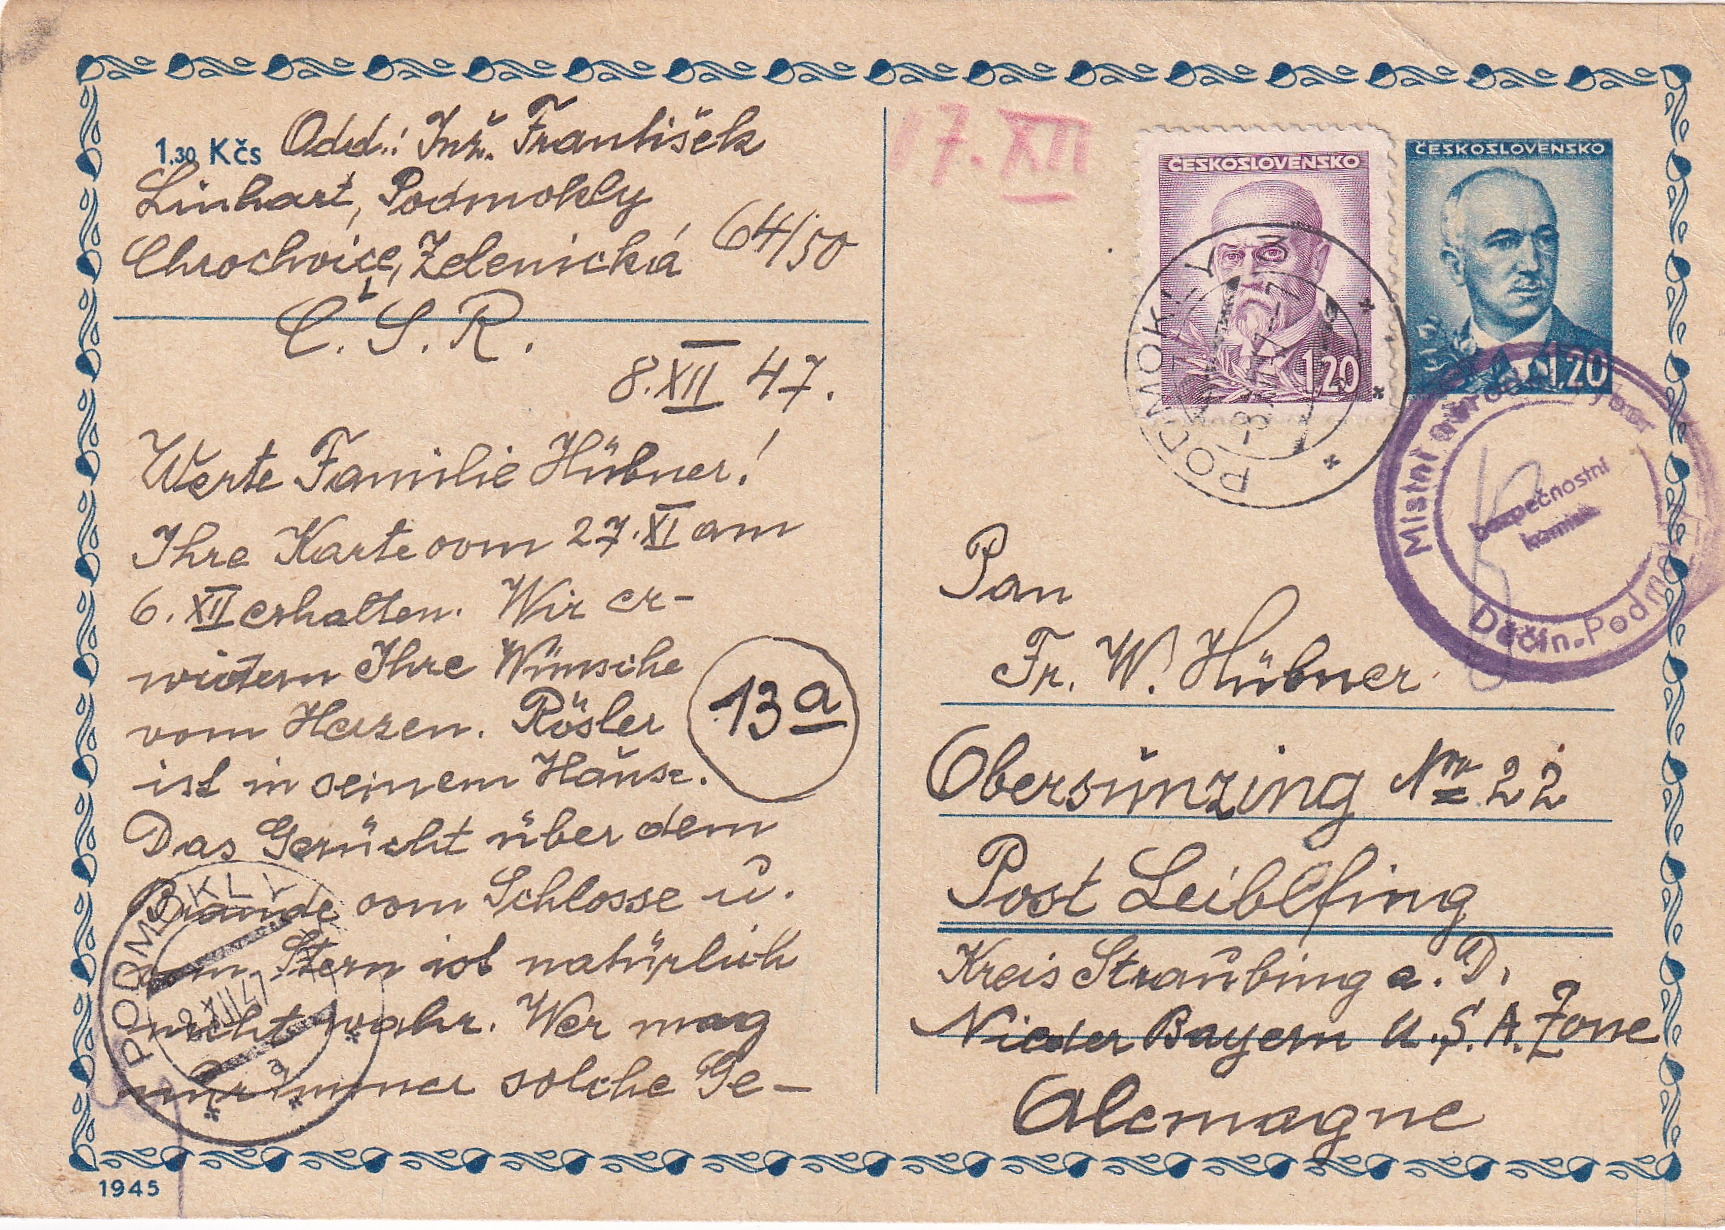 1.30 Kčs Odd.: Inž. František
Linhart, Podmokly
Chrochvice, Zelenická 64/50
Č. S. R.
8.XII 47.
Werte Familie Hübner!
Ihre Karte vom 27.XI am
6.XII erhalten. Wir er-
widern Ihre Wünsche
vom Herzen. Rösler
ist in seinem Hause.
13a
Das Gerücht über dem
Brande vom Schlosse u.
vom Stern ist natürlich
nicht wahr. Wer mag
nur immer solche Ge-
PODMOKLY
8.XII.47
a
1945
17.XII
ČESKOSLOVENSKO
1.20
ČESKOSLOVENSKO
1.20
PODMOKLY
-8.XII.47-
Místní
bezpečnostní
komise
Děčín-Podmokly
Pan
Fr. W. Hübner
Obersünzing Nro 22
Post Leiblfing
Kreis Straubing a. D.
Nieder Bayern U.S.A. Zone
Alemagne